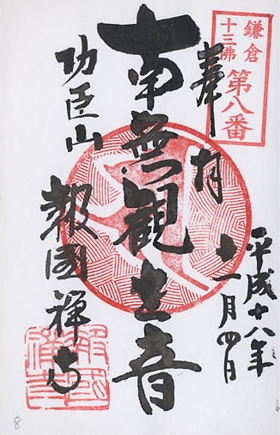 鎌倉
十三佛
第八番
奉拝
平成十八年
十一月四日
南無觀世音
功臣山
報國禅寺
8